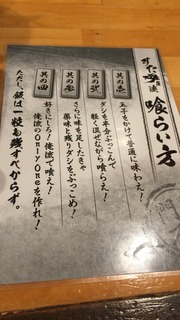 すた丼流 喰らい方
其の壱
玉子をかけて普通に味わえ!
其の弐
ダシを半分ぶっこんで
軽く混ぜながら喰らえ!
其の参
さらに味を足したきゃ
薬味と残りダシをぶっこめ!
其の四
好きにしろ!俺流で喰え!
俺流のOnly Oneを作れ!
ただし、飯は一粒も残すべからず。